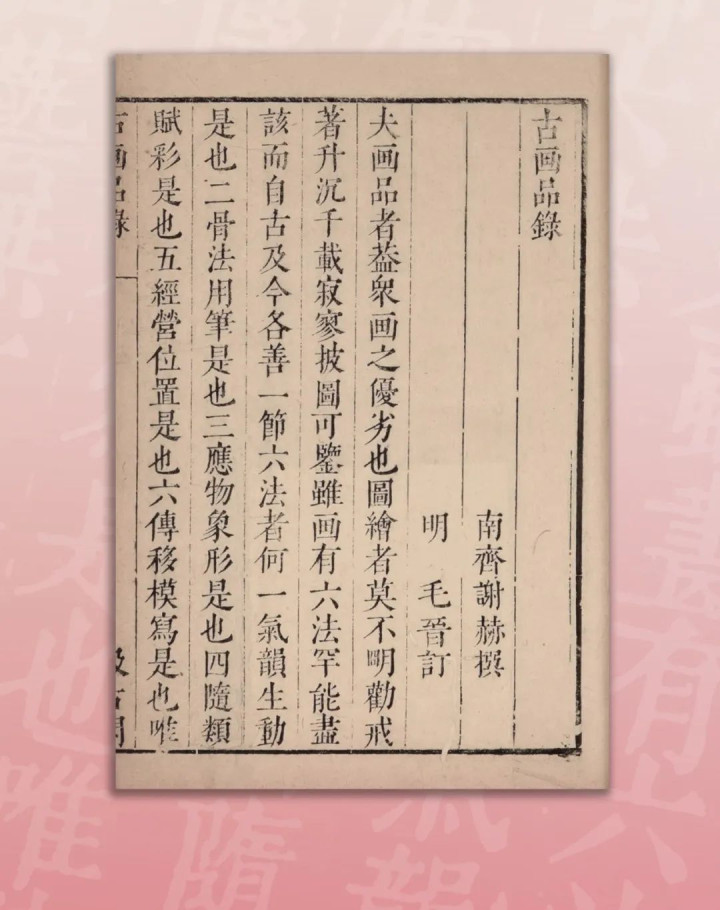 古画品錄
南齊謝赫撰
明 毛晉訂
夫画品者葢衆画之優劣也圖繪者莫不明勸戒
著升沉千載寂寥披圖可鑒雖画有六法罕能盡
該而自古及今各善一節六法者何一氣韻生動
是也二骨法用筆是也三應物象形是也四隨類
賦彩是也五經營位置是也六傳移模寫是也唯
古画品錄
汲古閣